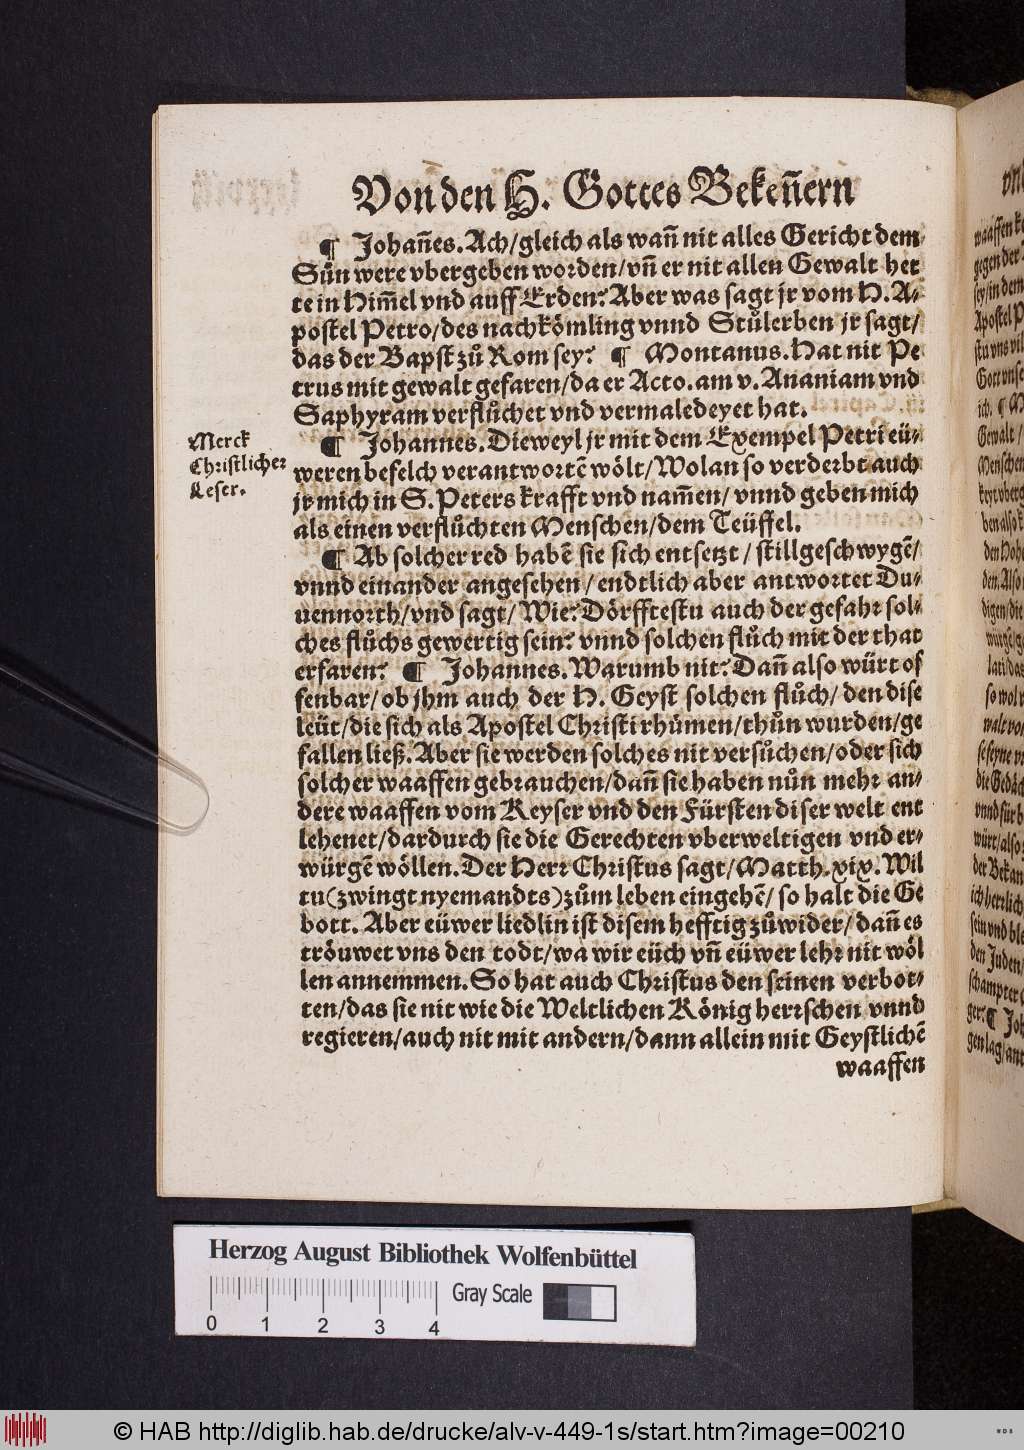 Von den H. Gottes Bekeñern
¶ Johañes. Ach/gleich als wañ nit alles Gericht dem
Suͦn were vbergeben worden/vñ er nit allen Gewalt het
te in Him̃el vnd auff Erden? Aber was sagt jr vom H. A-
postel Petro/des nachkömling vnnd Stuͦlerben jr sagt/
das der Bapst zuͦ Rom sey? ¶ Montanus. Hat nit Pe
trus mit gewalt gefaren/da er Acto. am v. Ananiam vnd
Saphyram verfluͦchet vnd vermaledeyet hat.
Merck
Christlicher
Leser.
¶ Johannes. Dieweyl jr mit dem Exempel Petri eü-
weren befelch verantwortẽ wölt/Wolan so verderbt auch
jr mich in S. Peters krafft vnd nam̃en/vnnd geben mich
als einen verfluͦchten Menschen/dem Teüffel.
¶ Ab solcher red habẽ sie sich entsetzt/stillgeschwygẽ/
vnnd einander angesehen/endtlich aber antwortet Du-
uennorth/vnd sagt/Wie? Dörfftestu auch der gefahr sol-
ches fluͦchs gewertig sein? vnnd solchen fluͦch mit der that
erfaren? ¶ Johannes. Warumb nit? Dañ also würt of
fenbar/ob jhm auch der H. Geyst solchen fluͦch/den dise
leüt/die sich als Apostel Christi rhuͤmen/thuͦn wurden/ge
fallen ließ. Aber sie werden solches nit versuͦchen/oder sich
solcher waaffen gebrauchen/dañ sie haben nuͦn mehr an-
dere waaffen vom Keyser vnd den Fürsten diser welt ent
lehenet/dardurch sie die Gerechten vberweltigen vnd er-
würgẽ wöllen. Der Herr Christus sagt/Matth. xix. Wil
tu (zwingt nyemandts) zuͦm leben eingehẽ/so halt die Ge
bott. Aber eüwer liedlin ist disem hefftig zuͦwider/dañ es
tröuwet vns den todt/wa wir eüch vñ eüwer lehr nit wöl
len annemmen. So hat auch Christus den seinen verbot-
ten/das sie nit wie die Weltlichen König herrschen vnnd
regieren/auch nit mit andern/dann allein mit Geystlichẽ
waaffen
Herzog August Bibliothek Wolfenbüttel
Gray Scale
0 1 2 3 4
© HAB http://diglib.hab.de/drucke/alv-v-449-1s/start.htm?image=00210